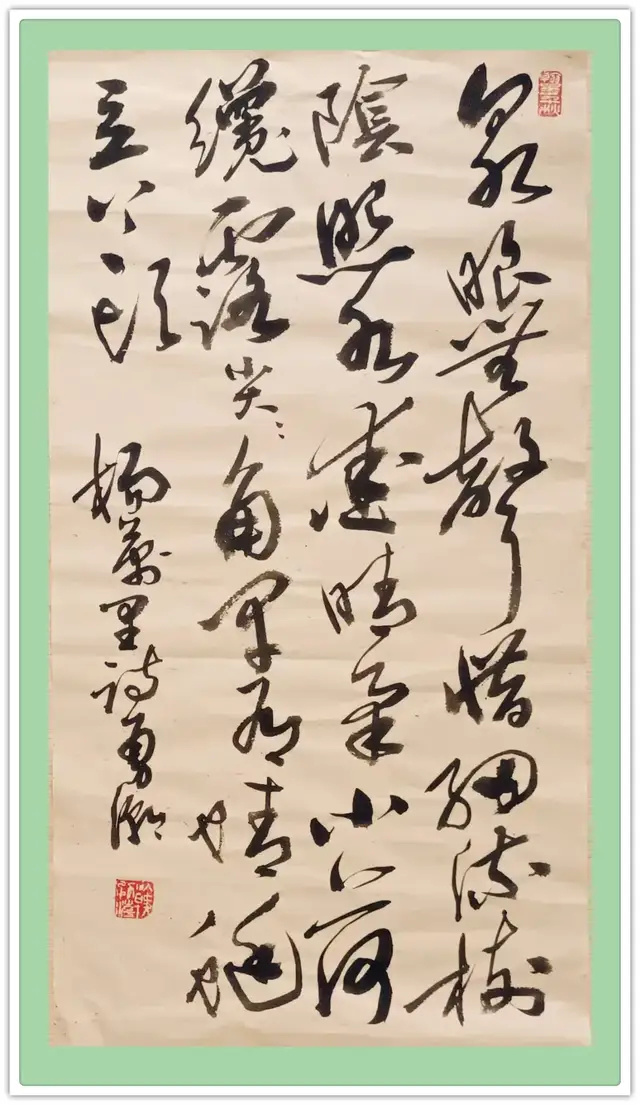 泉眼無聲惜細流樹
陰照水愛晴柔小荷
纔露尖々角早有蜻蜓
立上頭
楊萬里詩勇